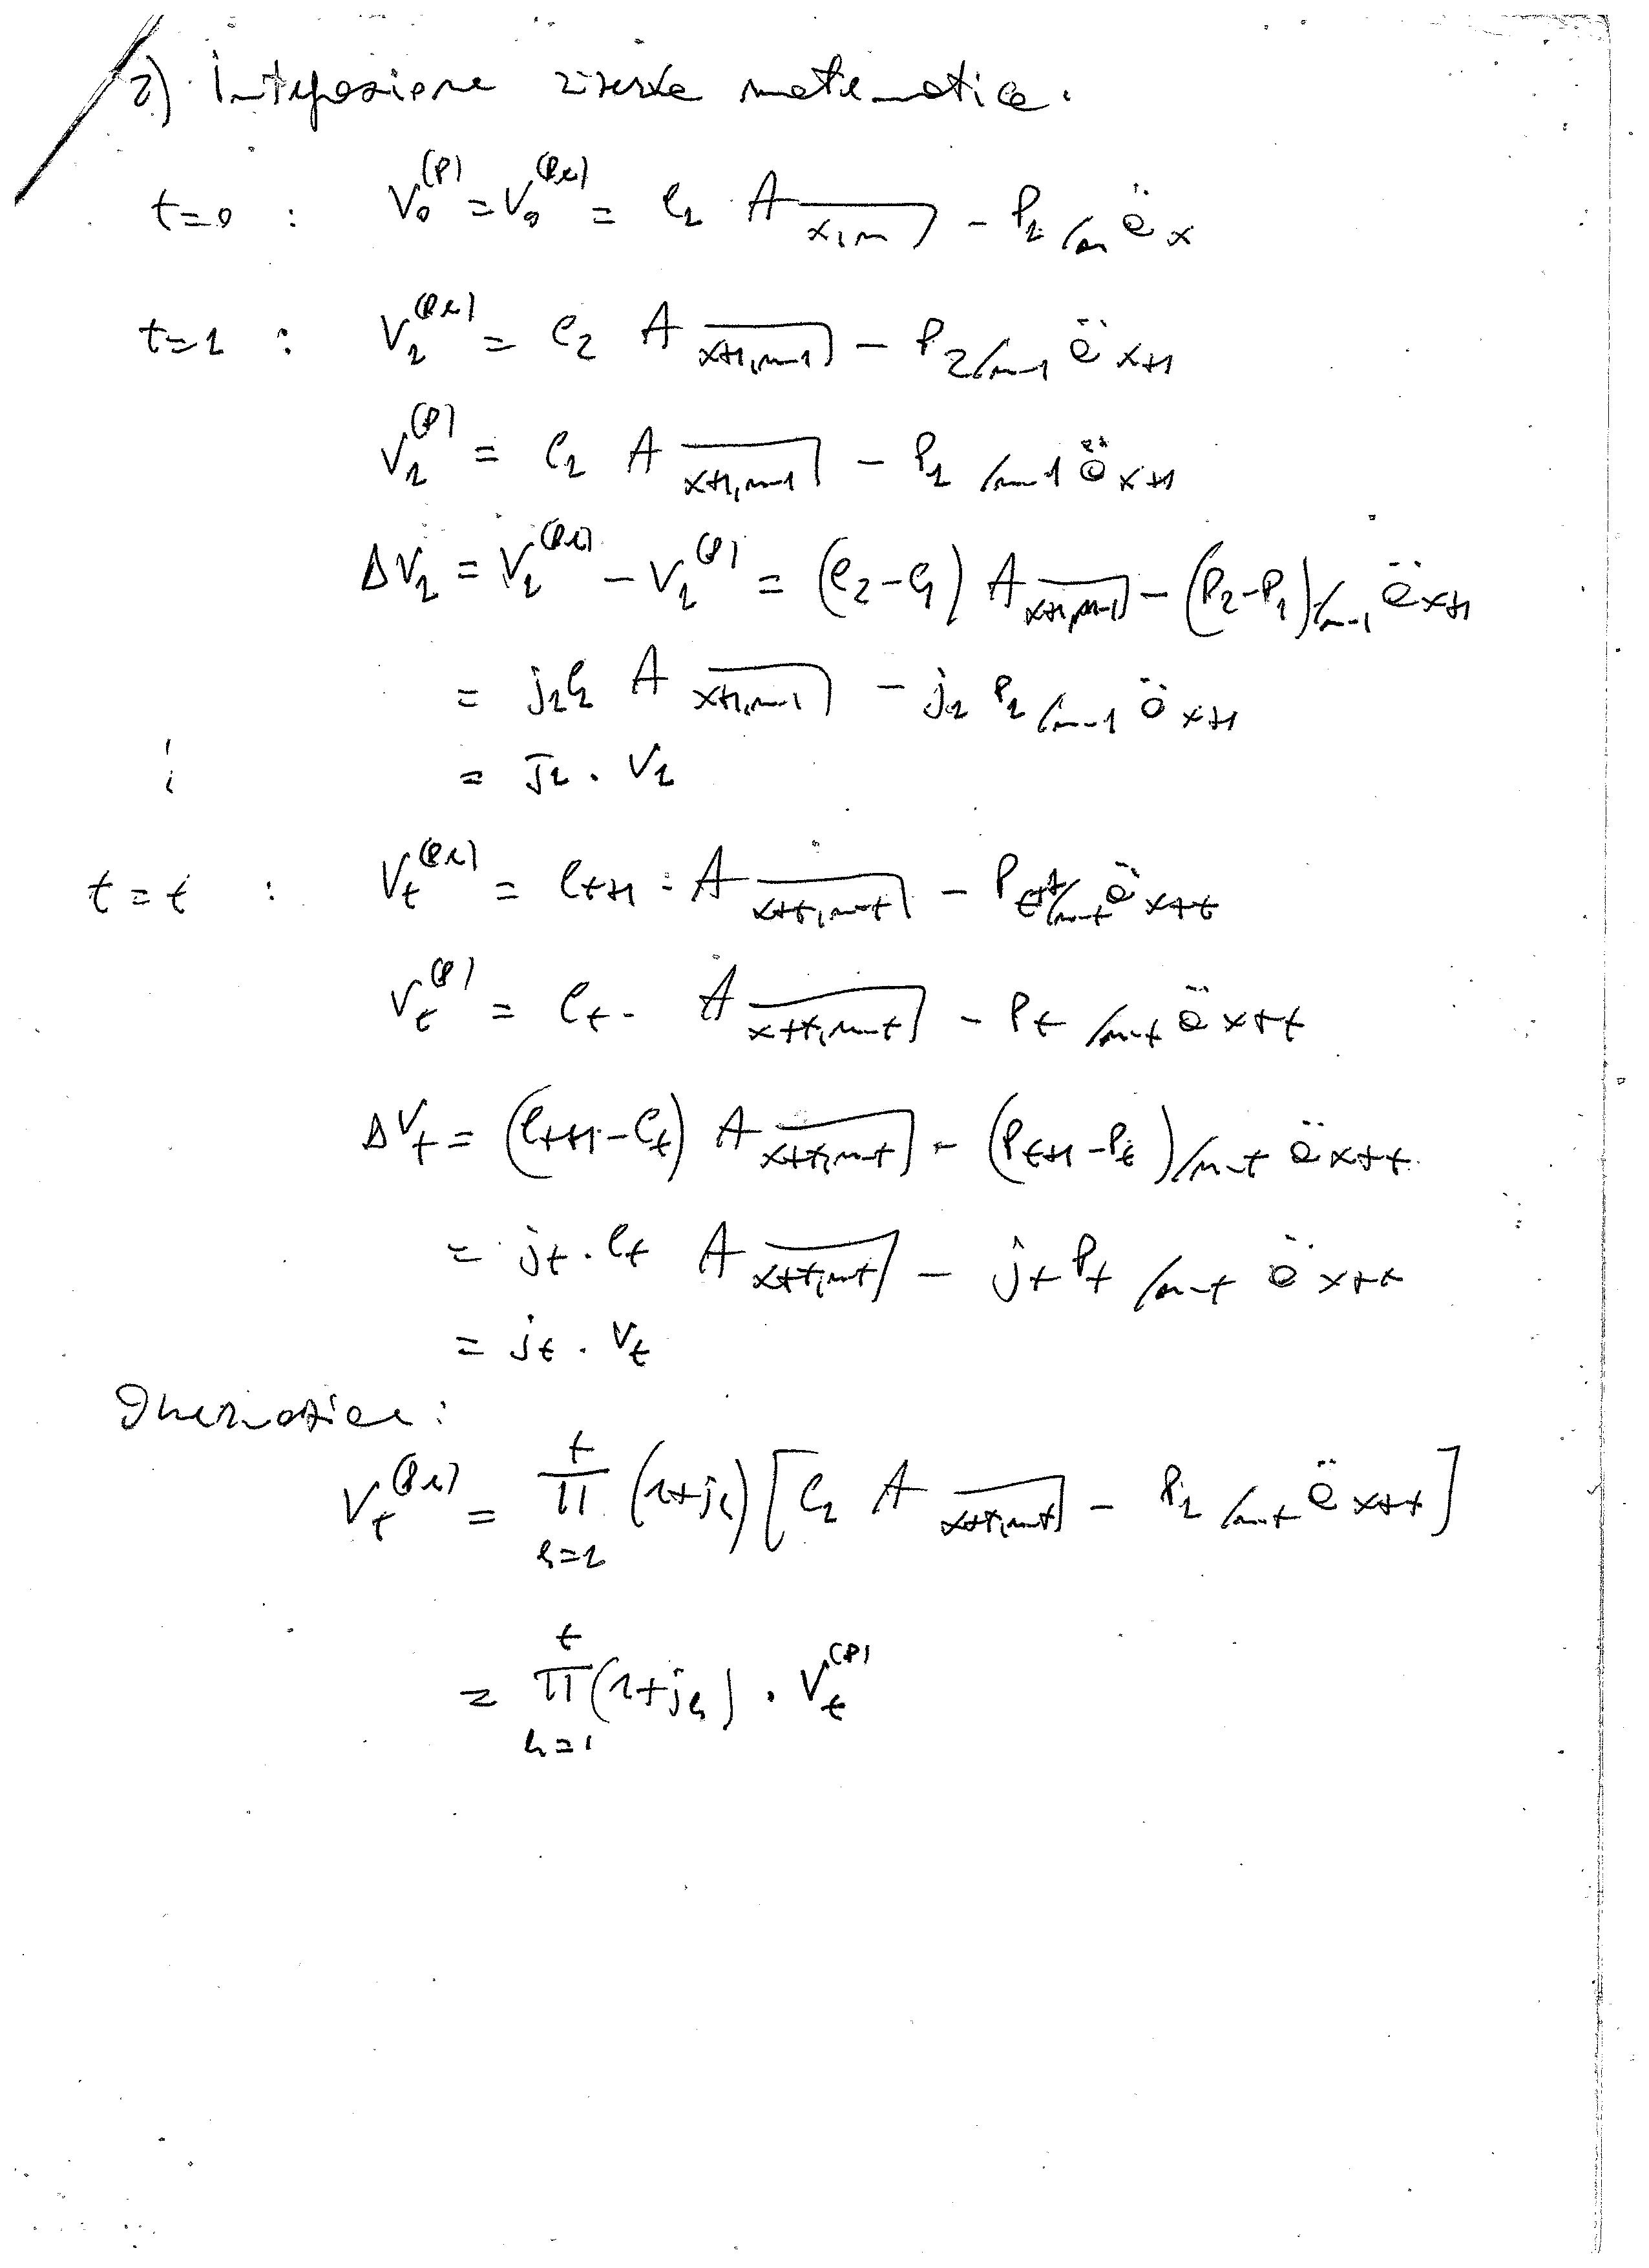 2) Integrazione riserva matematica.
t=0 : V₀^(P) = V₀^(Ri) = C₁ A_{x,n⌉} - P₁ /n ä_x
t=1 : V₁^(Ri) = C₂ A_{x+1,n-1⌉} - P₂ /n-1 ä_{x+1}
V₁^(P) = C₁ A_{x+1,n-1⌉} - P₁ /n-1 ä_{x+1}
ΔV₁ = V₁^(Ri) - V₁^(P) = (C₂-C₁) A_{x+1,n-1⌉} - (P₂-P₁) /n-1 ä_{x+1}
= j₁C₁ A_{x+1,n-1⌉} - j₁ P₁ /n-1 ä_{x+1}
⋮ = j₁ . V₁
t=t : V_t^(Ri) = C_{t+1} . A_{x+t,n-t⌉} - P_{t+1} /n-t ä_{x+t}
V_t^(P) = C_t . A_{x+t,n-t⌉} - P_t /n-t ä_{x+t}
ΔV_t = (C_{t+1}-C_t) A_{x+t,n-t⌉} - (P_{t+1}-P_t) /n-t ä_{x+t}
= j_t . C_t A_{x+t,n-t⌉} - j_t P_t /n-t ä_{x+t}
= j_t . V_t
V_t^(Ri) = ∏_{h=1}^{t} (1+j_h) [C₁ A_{x+t,n-t⌉} - P₁ /n-t ä_{x+t}]
= ∏_{h=1}^{t} (1+j_h) . V_t^(P)